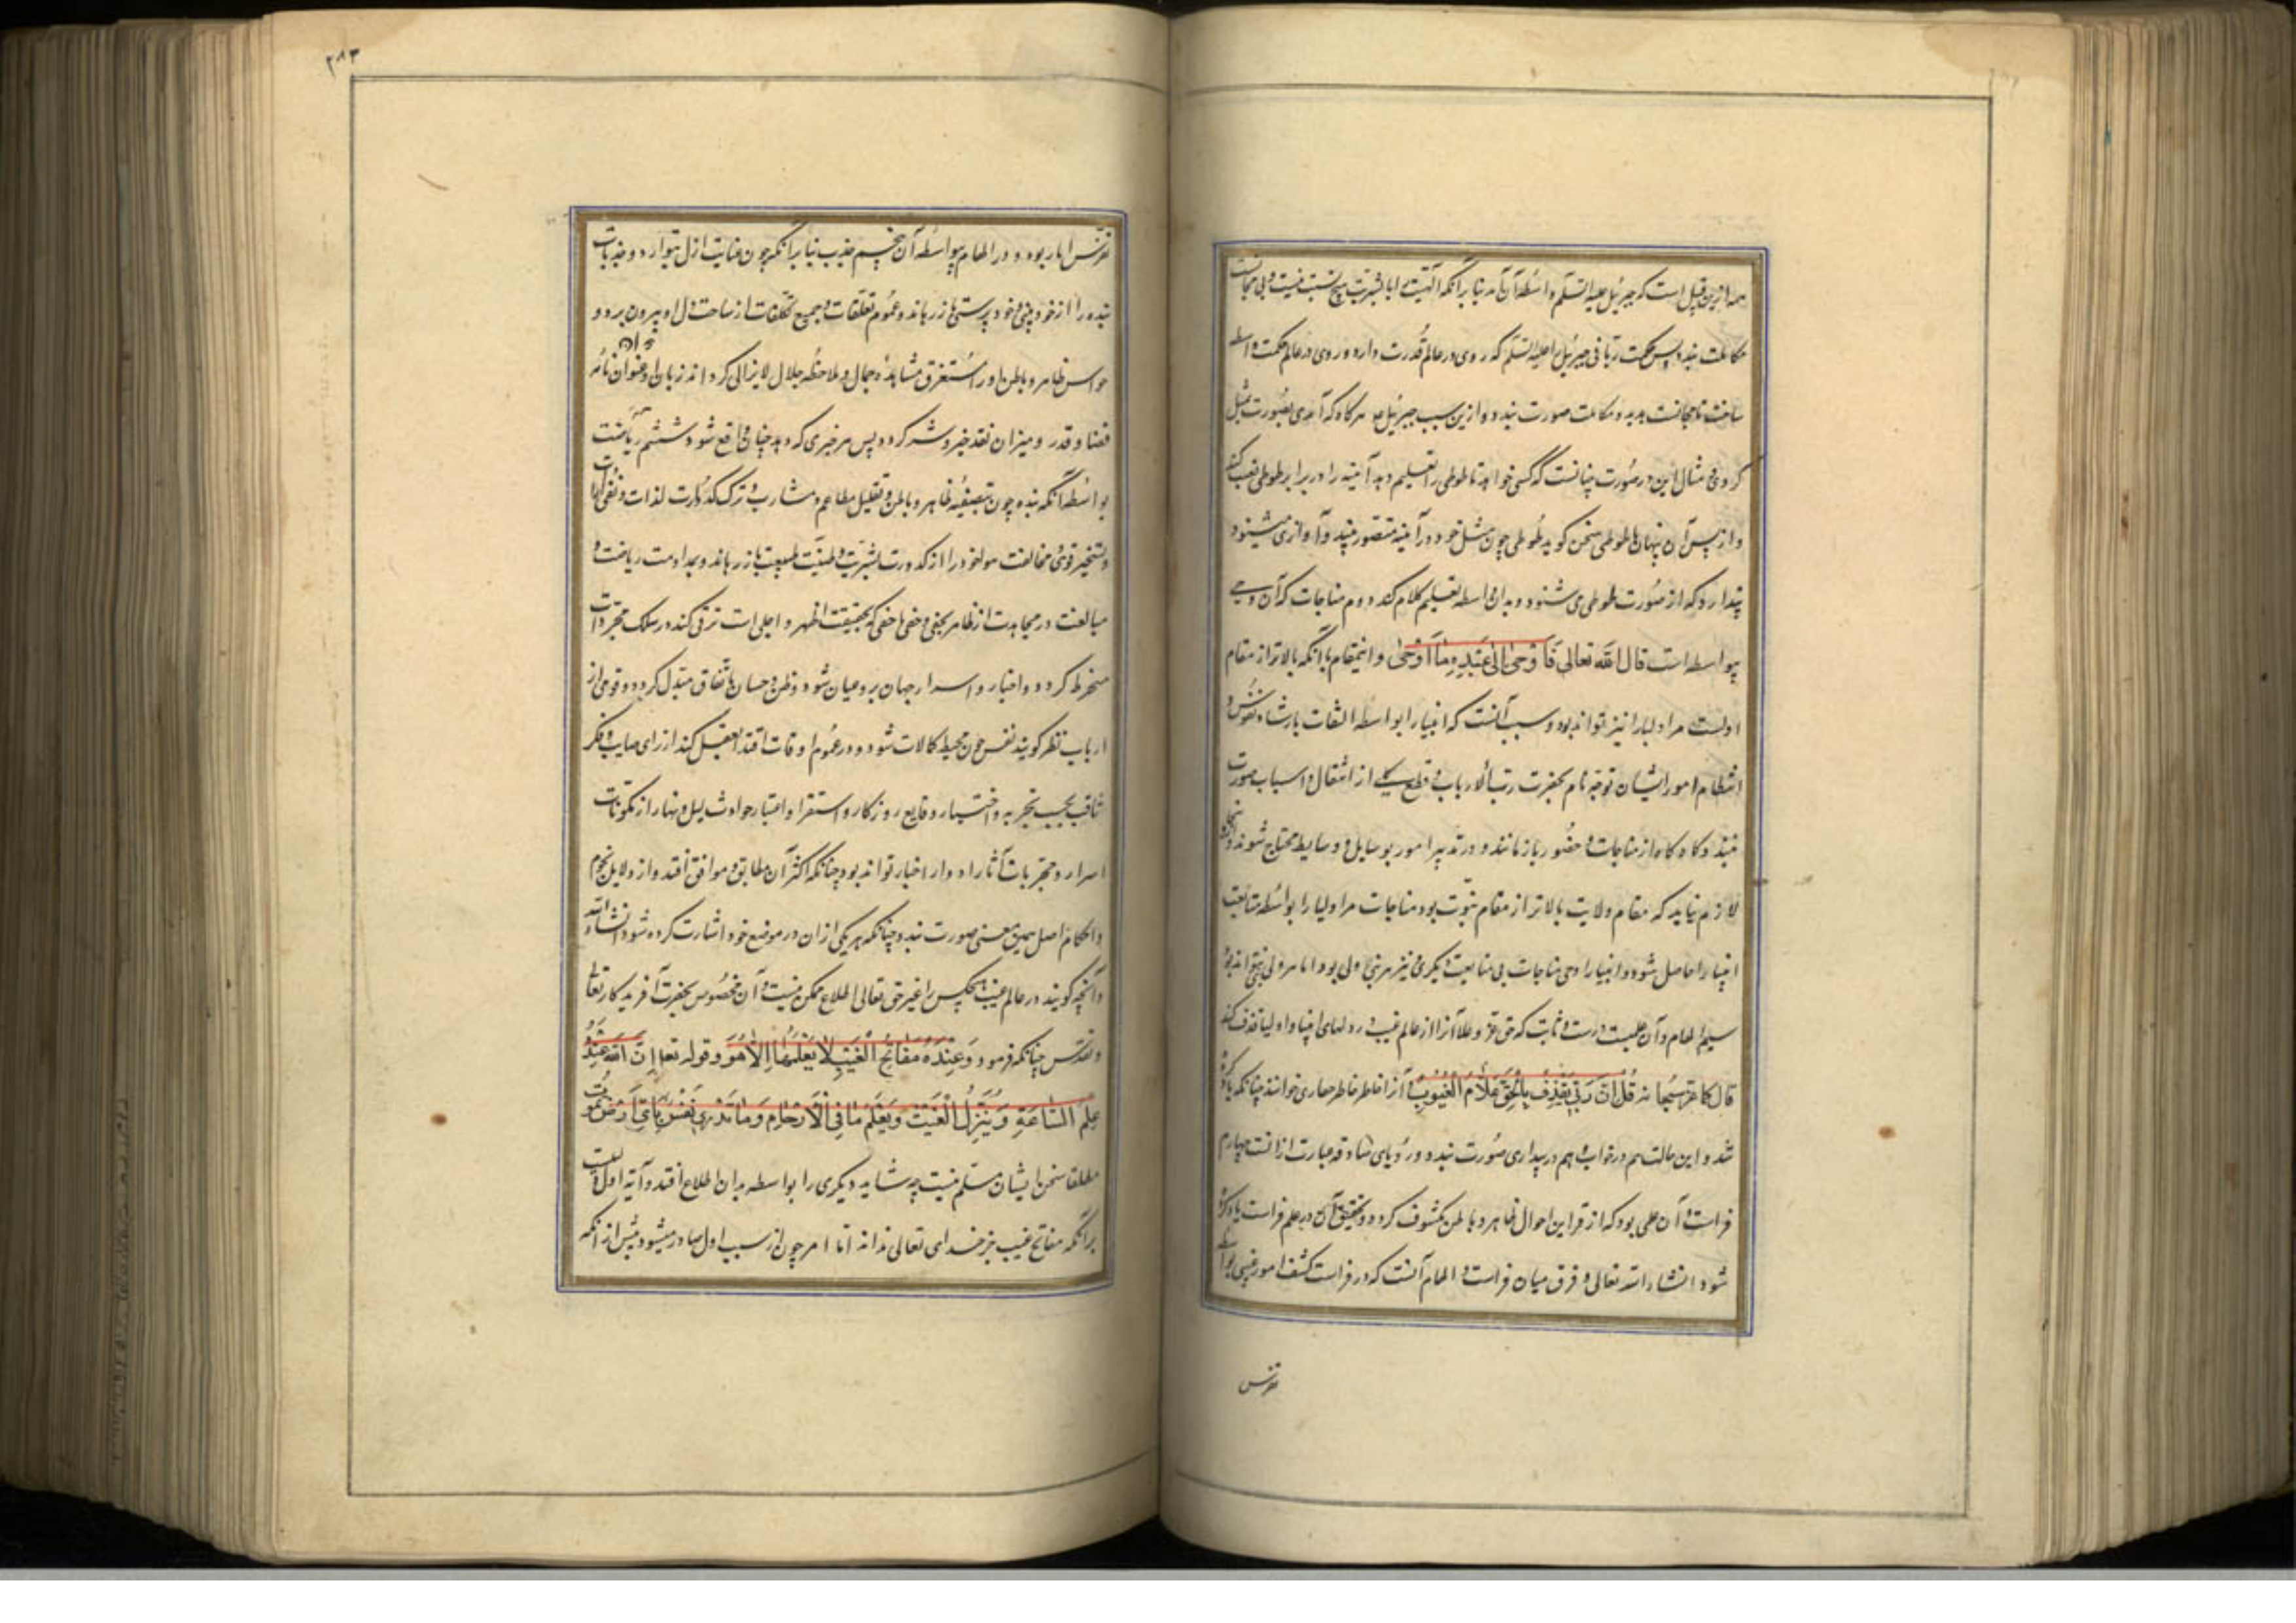 همه ازین قبیل است که جبرئیل علیه السّلم واسطهٔ آن آمد بنا برآنکه الهیت را با بشریت هیچ نسبت نیست و بی مجانست
مکالمت نبندد پس حکمت ربانی جبرئیل را علیه السّلم که روی در عالم قُدرت دارد و روی در عالم حکمت واسطه
ساخت تا مجانست پدید و مکالمت صورت بندد و ازین سبب جبرئیل عم هرگاه که آمدی بصُورت بشر متمثل
کردی مثال این در صُورت چنانست که کسی خواهد تا طوطی را تعلیم دهد آینه را در برابر طوطی نصب کند
و از پس آن پنهان با طوطی سخن کوید طُوطی چون مثل خود در آینه متصور بیند و آوازی میشنود
پندارد که از صُورت طوطی می شنود و بدان واسطه تعلیم کلام کند دوم مناجات که آن وحی
بیواسطه است قال الله تعالی فَاَوْحیٰ اِلیٰ عَبْدِهِ مٰا اَوْحیٰ و اینمقام با آنکه بالاتر از مقام
اولست مر اولیا را نیز تواند بود و سبب آنست که انبیا را بواسطهٔ التفات بارشاد نفوس و
انتظام امور ایشان توجه تام بحضرت رب الارباب و قطع کلی از اشتغال و اسباب صورت
نبندد و کاه کاه از مناجات و حضُور باز مانند و در تدبیر امور بوسایل و وسایط محتاج شوند و ازینجا
لازم نیاید که مقام ولایت بالاتر از مقام نبّوت بود مناجات مر اولیا را بواسطهٔ متابعت
انبیا را حاصل شود و انبیا را وحی مناجات بی متابعت دیکری و نیز هر نبی ولی بود اما هر ولی نبی نتواند بود
سیم الهام و آن علمیست درست و ثابت که حق عزّ و علا آنرا از عالم غیب در دلهای انبیا و اولیا قذف کند
قال کما عز سبحانه قُل اِنَّ رَبّی یَقْذِفُ بِالْحَقِّ عَلاّمُ الْغُیُوبِ و آنرا خاطر خوانند چنانکه یاد کرده
شد و این حالت هم در خواب و هم در بیداری صُورت بندد و رؤیای صادقه عبارت ازانست چهارم
فراست و آن علمی بود که از قراین احوال ظاهر و باطن مکشوف کردد و تحقیق آن در علم فراست یاد کرده
شود انشاء الله تعالی و فرق میان فراست و الهام آنست که در فراست کشف امور غیبی بواسطه
تفرّس
تفرّس اثار بود و در الهام بیواسطهٔ آن پنجم جذب بنا برآنکه چون عنایت ازل بتوارد و جذبات
بنده را از خودبینی و خودپرستی باز رهاند و عمُوم تعلقات و جمیع تکلّفات از ساحت دل او بیرون برد و
حواس ظاهر و باطن او را مستغرق مشاهدهٔ جمال و ملاحظهٔ جلال لایزالی کرداند زبان او عنوان نامهٔ
قضا و قدر و میزان نقد خیر و شر کردد پس هر خبری که دهد چنان واقع شود ششم ریاضت
بواسطهٔ آنکه بنده چون بتصفیهٔ ظاهر و باطن و تقلیل مطاعم و مشارب و ترک کدُورت لذات و نفی
و تسخیر قوی و مخالفت خود را از کدورت بشریت و طبیعت باز رهاند و بمداومت ریاضت و
مبالغت در مجاهدت از ظاهر بخفی و خفی باخفی که بحقیقت اظهر و اجلی است ترقی کند در سلک مجردات
منخرط کردد و اخبار و اسرار جهان برو عیان شود و ظن و حسبان باتفاق مبدّل کردد و قومی از
ارباب نظر کویند نفس چون محیط کمالات شود و در عموم اوقات اقتدا بعقل کند از رای صایب و فکر
ثاقب بحسب تجربه و اختبار وقایع روزکار و استقرا و اعتبار حوادث لیل و نهار از مکونات
اسرار و مجربات آثار ادوار اخبار تواند بود چنانکه اکثر آن مطابق و موافق اُفتد و از دلایل نجوم
و احکام اصل همین معنی صورت بندد چنانکه هریکی ازان در موضع خود اشارت کرده شود انشاء الله
و آنچه کویند در عالم غیب هیچکس را غیر حق تعالی اطلاع ممکن نیست و آن مخصُوص بحضرت آفریدکار تعالی
و تقدس چنانکه فرمود وَعِنْدَهُ مَفَاتِحُ الْغَیْبِ لاٰ یَعْلَمُهٰا اِلاّٰ هُوَ و قوله تعا اِنَّ اللهَ عِنْدَهُ
عِلْمُ السّٰاعَةِ وَیُنَزِّلُ الْغَیْثَ وَیَعْلَمُ مٰا فِی الْاَرْحٰامِ وَمٰا تَدْری نَفْسٌ بِاَیِّ اَرْضٍ تَمُوتُ
مطلقا سخن ایشان مسلّم نیست چه شاید دیکری را بواسطه بدان اطلاع افتد و آیهٔ اول
برآنکه مفاتح غیب جز خدای تعالی نداند اما امر چون از سبب اول صادر میشود پیش از آنکه
۲۸۳